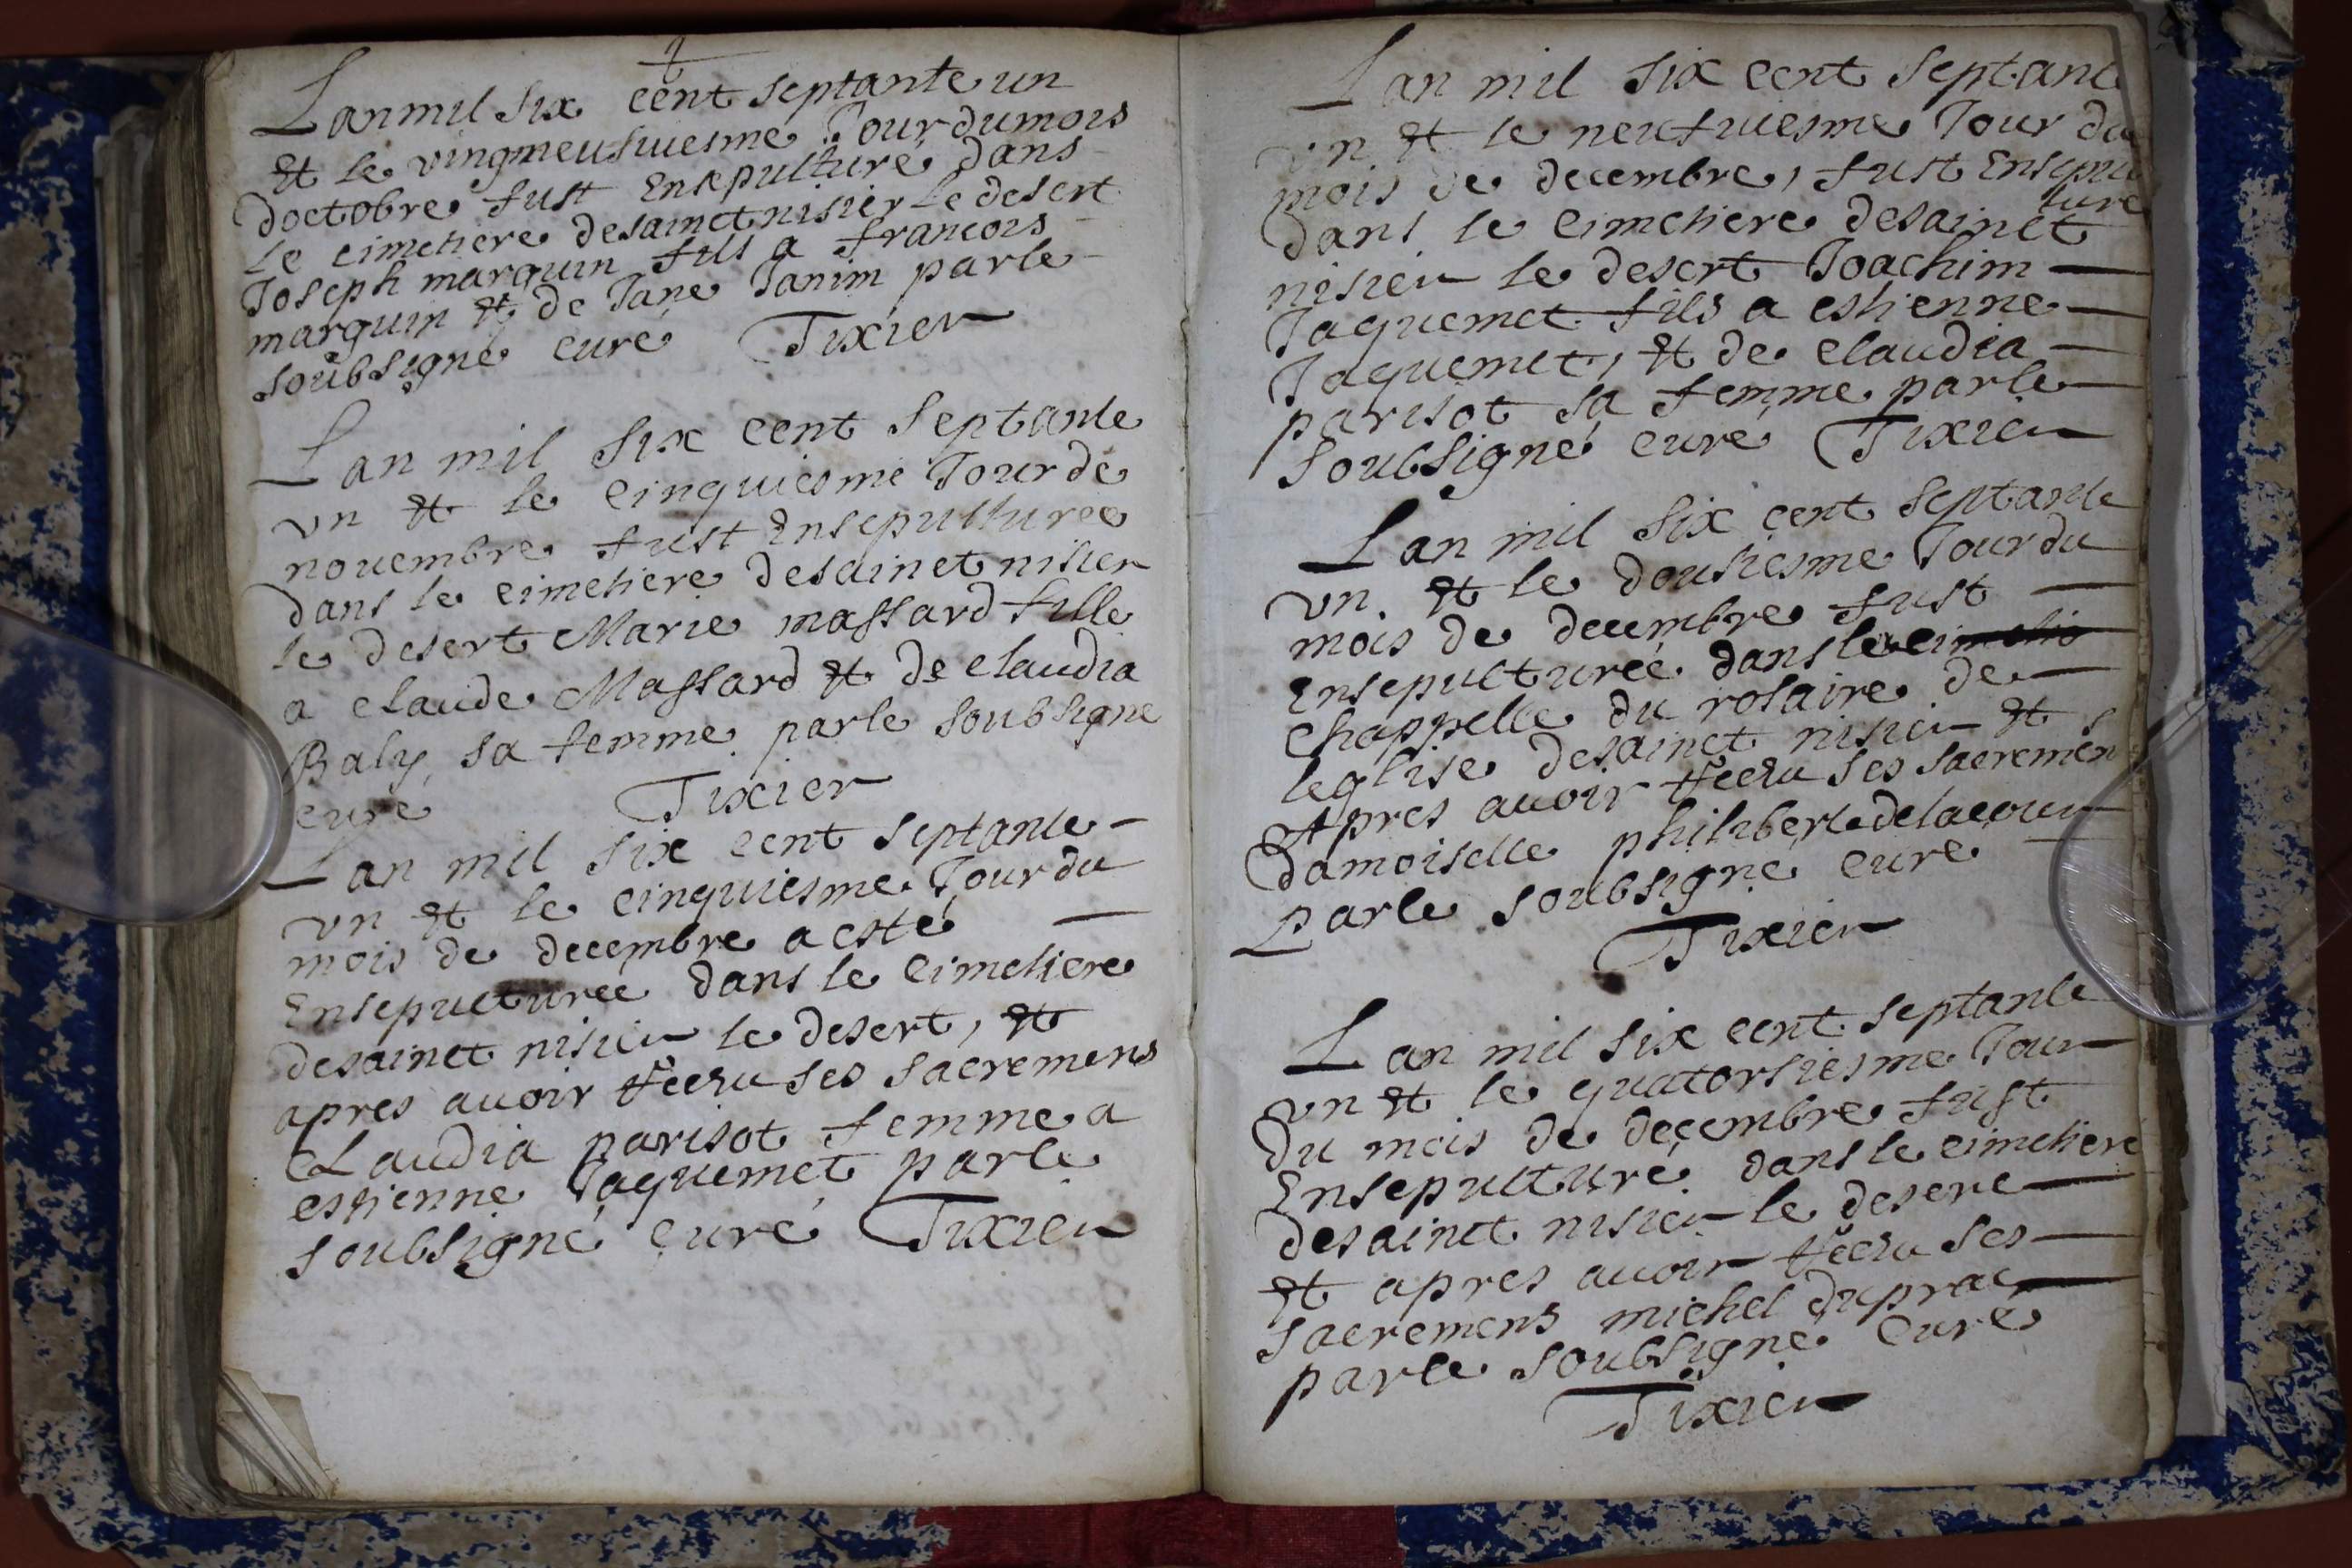 Lan mil six cent septante un
et le vingneufuiesme Jour du mois
doctobre fust Ensepulturé dans
le cimetiere de sainct nisier le desert
Joseph marquin fils a francois
marquin et de Jane Janim par le
soubsigné curé Tixier
Lan mil six cent septante
vn et le cinquiesme Jour de
nouembre fust Ensepulturee
dans le cimetiere de sainct nisier
le desert Marie massard fille
a claude Massard et de claudia
Baly sa femme par le soubsigne
curé Tixier
Lan mil six cent septante
vn et le cinquiesme Jour du
mois de decembre a esté
Ensepulturée dans le cimetiere
de sainct nisier le desert, et
apres auoir receu ses sacremens
Claudia parisot femme a
estienne Jaquemet par le
soubsigné curé Tixier
Lan mil six cent septante
vn et le neufuiesme Jour du
mois de decembre, fust Ensepul
ture
dans le cimetiere de sainct
nisier le desert Joachim
Jaquemet fils a estienne
Jaquemet, et de claudia
parisot sa femme par le
soubsigné curé Tixier
Lan mil six cent septante
vn. et le dousiesme Jour du
mois de decembre fust
Ensepulturée dans la cimetie
chappelle du rosaire de
leglise de sainct nisier et
Apres auoir receu ses sacremens
damoiselle philiberte delacour
par le soubsigné curé
Tixier
Lan mil six cent septante
vn et le quatorsiesme Jour
du mois de decembre fust
Ensepulturé dans le cimetiere
de sainct nisier le desert
et apres auoir receu ses
sacremens michel duprac
par le soubsigné curé
Tixier